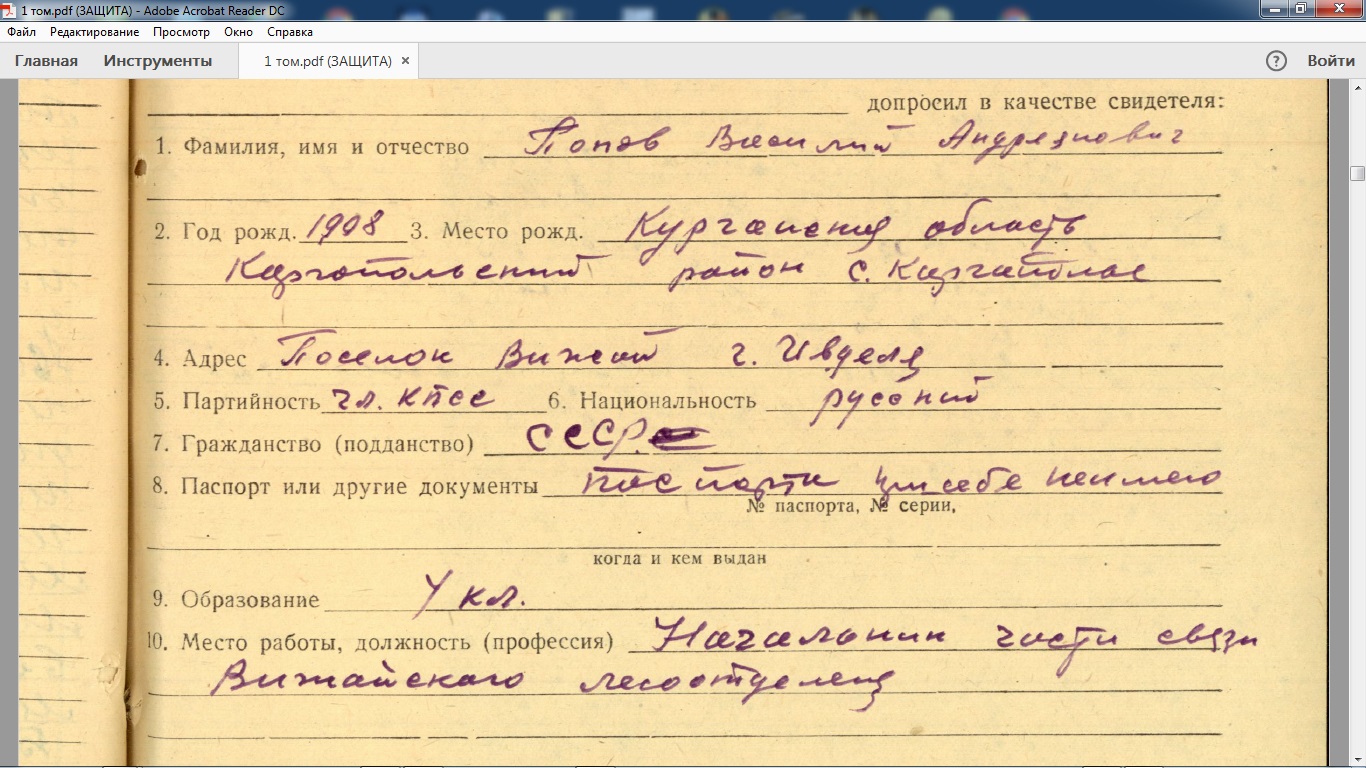 1 том.pdf (ЗАЩИТА) - Adobe Acrobat Reader DC
Файл Редактирование Просмотр Окно Справка
Главная Инструменты 1 том.pdf (ЗАЩИТА) × ? Войти
допросил в качестве свидетеля:
1. Фамилия, имя и отчество Попов Василий Андреянович
2. Год рожд. 1908 3. Место рожд. Курганская область
Каргопольский район с.
4. Адрес Поселок Вижай г. Ивделя
5. Партийность чл. КПСС 6. Национальность русский
7. Гражданство (подданство) СССР.
8. Паспорт или другие документы паспорта при себе неимею
№ паспорта, № серии,
когда и кем выдан
9. Образование кл.
10. Место работы, должность (профессия) Начальник части связи
Вижайского лесоотделения